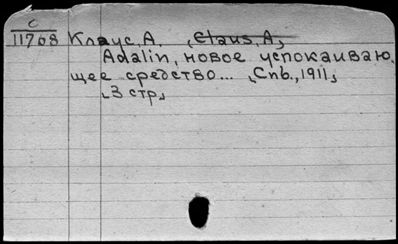 С
11768 Клаус, А. [Claus, A.]
Adalin, новое успокаиваю,
щее средство... [Спб., 1911]
[3 стр]